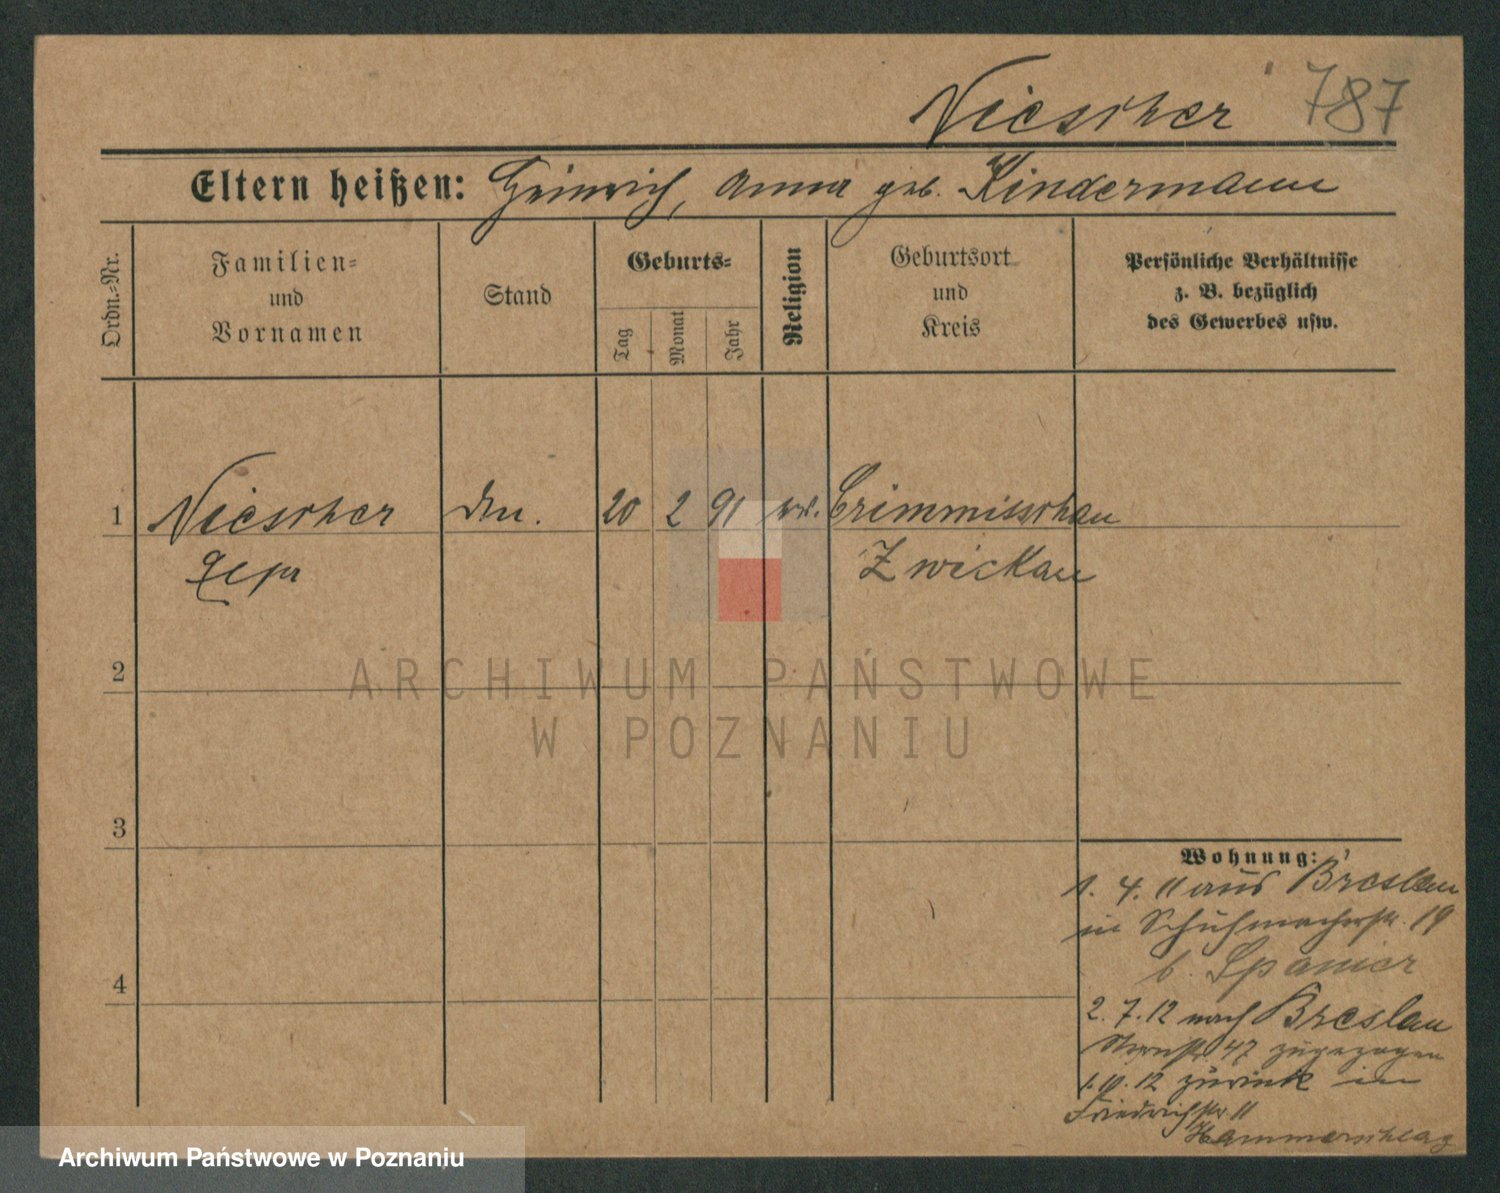 Niescher 787
Eltern heißen: Heinrich, Anna geb. Kindermann
Ordn.-Nr.
Familien-
und
Vornamen
Stand
Geburts-
Tag
Monat
Jahr
Religion
Geburtsort
und
Kreis
Persönliche Verhältnisse
z. B. bezüglich
des Gewerbes usw.
1 Niescher 20 2 91 Crimmisschau
Zwickau
2
3
4
Wohnung:
1. 4. 11 aus Breslau
in Schuhmacherstr. 19
b. Spanier
2. 7. 12 nach Breslau
Sternstr. 47 zugezogen
1. 10. 12 zurück in
Friedrichstr. 11
Hammerschlag
ARCHIWUM PAŃSTWOWE
W POZNANIU
Archiwum Państwowe w Poznaniu